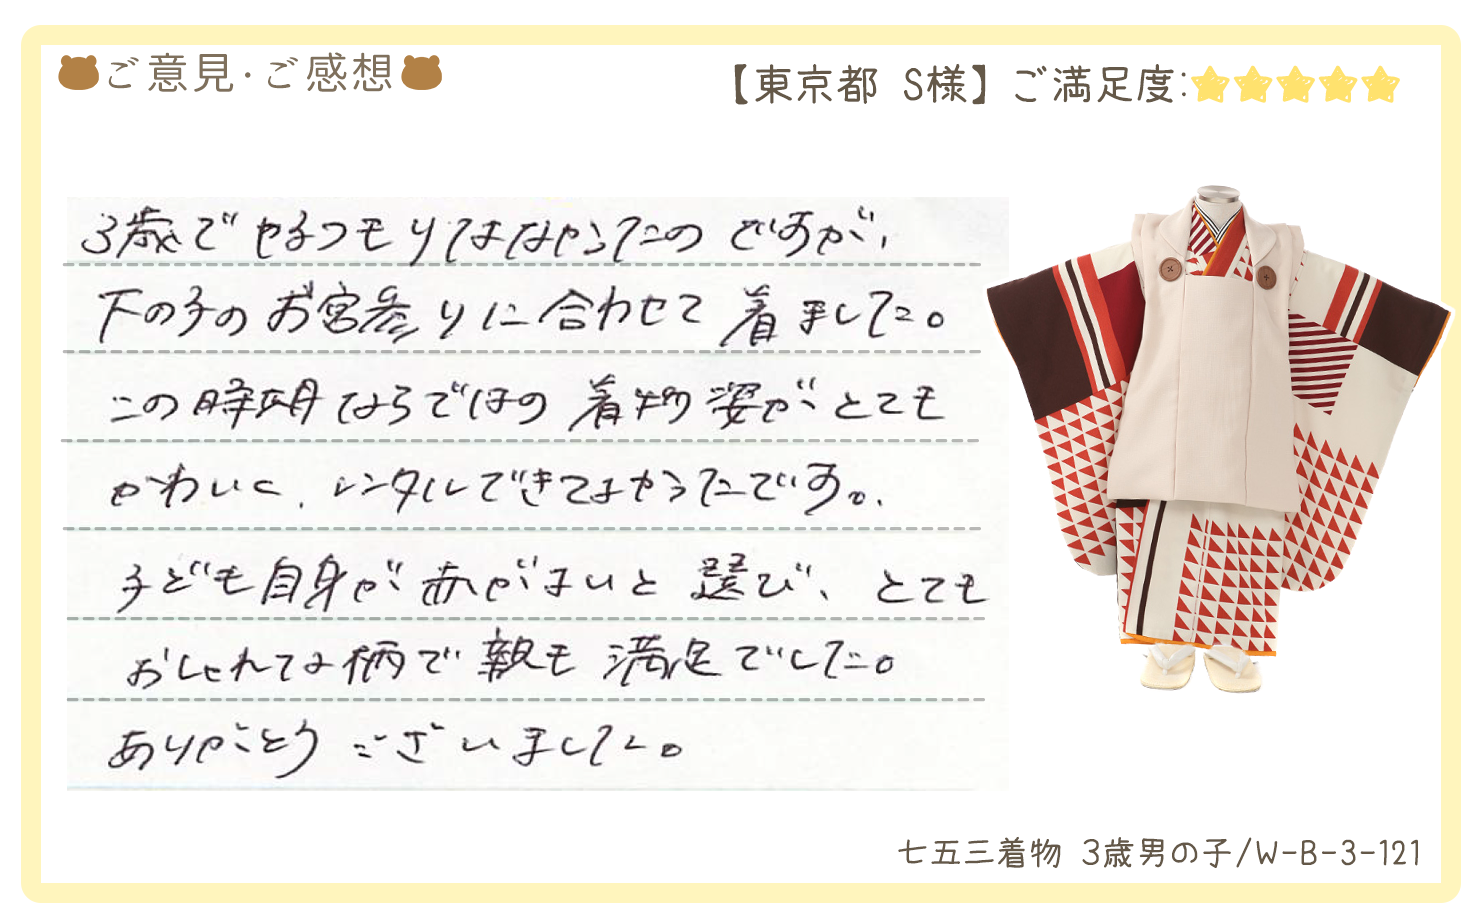 ご意見・ご感想
【東京都 S様】ご満足度:
3歳でやるつもりはなかったのですが、
下の子のお宮参りに合わせて着ました。
この時期ならではの着物姿がとても
かわいく、レンタルできてよかったです。
子ども自身が赤がよいと選び、とても
おしゃれな柄で親も満足でした。
ありがとうございました。
七五三着物 3歳男の子/W-B-3-121